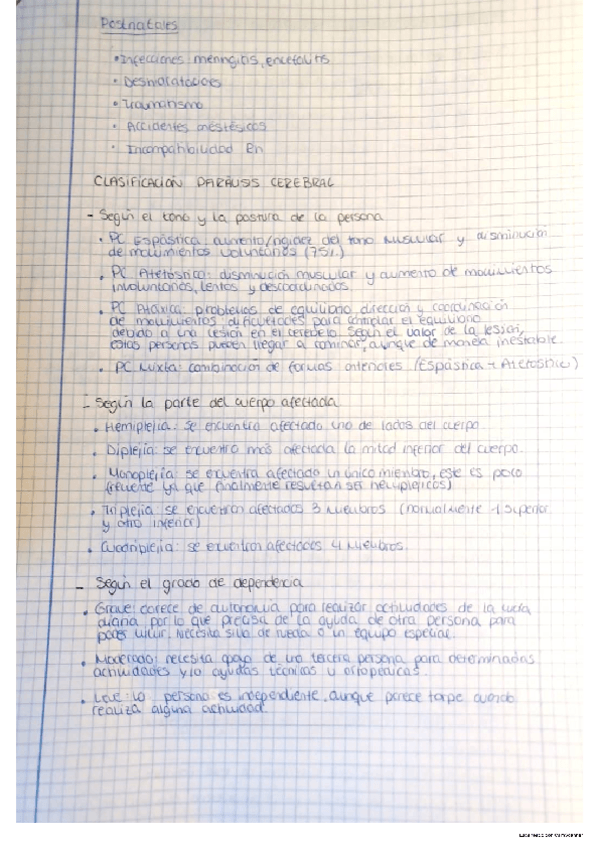 Postnatales
• Infecciones meningitis, encefalitis
• Deshidrataciones
• Traumatismo
• Accidentes anestésicos
• Incompatibilidad Rh
CLASIFICACIÓN PARÁLISIS CEREBRAL
- Según el tono y la postura de la persona
• PC Espástica: aumento/rigidez del tono muscular y disminución
de movimientos voluntarios (75%)
• PC Atetósica: disminución muscular y aumento de movimientos
involuntarios, lentos y descoordinados.
• PC Atáxica: problemas de equilibrio dirección y coordinación
de movimientos, dificultades para controlar el equilibrio
debido a una lesión en el cerebelo. Según el valor de la lesión,
estas personas pueden llegar a caminar, aunque de manera inestable.
• PC Mixta: combinación de formas anteriores (Espástica + Atetósica)
- Según la parte del cuerpo afectada
• Hemiplejia: se encuentra afectado uno de lados del cuerpo.
• Diplejia: se encuentra más afectada la mitad inferior del cuerpo.
• Monoplejia: se encuentra afectado un único miembro, este es poco
frecuente ya que finalmente resultan ser hemiplejicos)
• Triplejia: se encuentran afectados 3 miembros (normalmente 1 superior
y otro inferior)
• Cuadriplejia: se encuentran afectados 4 miembros.
- Según el grado de dependencia
• Grave: carece de autonomía para realizar actividades de la vida
diaria por lo que precisa de la ayuda de otra persona para
poder vivir. Necesita silla de rueda o un equipo especial.
• Moderado: necesita apoyo de una tercera persona para determinadas
actividades y/o ayudas técnicas u ortopédicas.
• Leve: la persona es independiente, aunque parece torpe cuando
realiza alguna actividad.